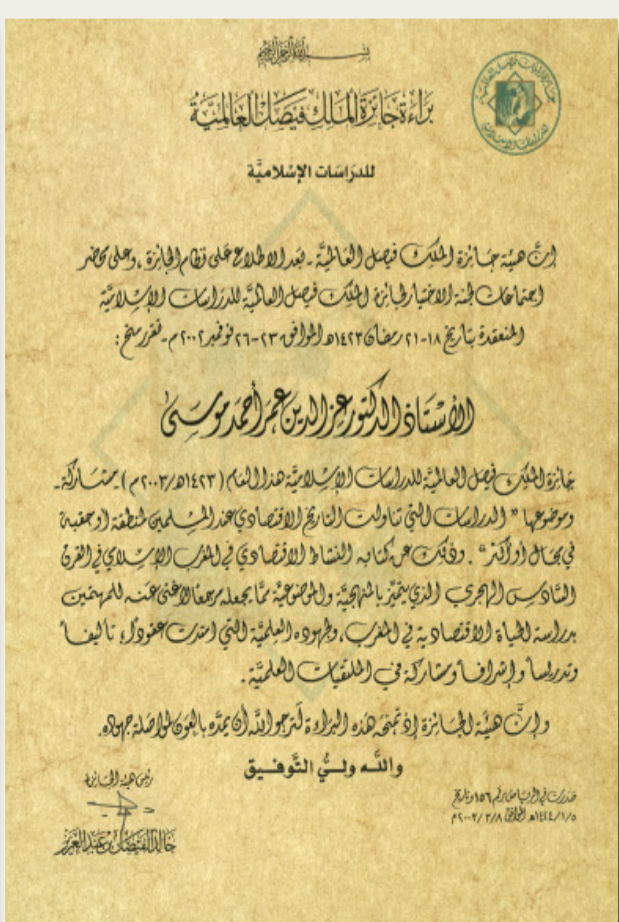 بسم الله الرحمن الرحيم
براءة جائزة الملك فيصل العالمية
للدراسات الإسلامية
إن هيئة جائزة الملك فيصل العالمية ـ بعد الاطلاع على نظام الجائزة، وعلى محضر
اجتماعات لجنة الاختيار لجائزة الملك فيصل العالمية للدراسات الإسلامية
المنعقدة بتاريخ ١٨-٢١ رمضان ١٤٢٣هـ الموافق ٢٣-٢٦ نوفمبر ٢٠٠٢م ـ تقرر منح:
الأستاذ الدكتور عز الدين عمر أحمد موسى
جائزة الملك فيصل العالمية للدراسات الإسلامية هذا العام (١٤٢٣هـ/٢٠٠٣م) مشاركة ـ
وموضوعها "الدراسات التي تناولت التاريخ الاقتصادي عند المسلمين لمنطقة أو حقبة
في مجال أو أكثر". وذلك عن كتابه النشاط الاقتصادي في المغرب الإسلامي في القرن
السادس الهجري الذي يتميز بالمنهجية والموضوعية مما يجعله مرجعا لا غنى عنه للمهتمين
بدراسة الحياة الاقتصادية في المغرب، ولجهوده العلمية التي امتدت عقودا، تأليفا
وتدريسا وإشرافا ومشاركة في الملتقيات العلمية.
وإن هيئة الجائزة إذ تمنحه هذه البراءة لترجو الله أن يمده بالعون لمواصلة جهوده.
والله ولي التوفيق
رئيس هيئة الجائزة
خالد الفيصل بن عبد العزيز
صدرت في الرياض برقم ١٥٦ وتاريخ
١٤٢٤/١/٥هـ الموافق ٢٠٠٣/٣/٨م